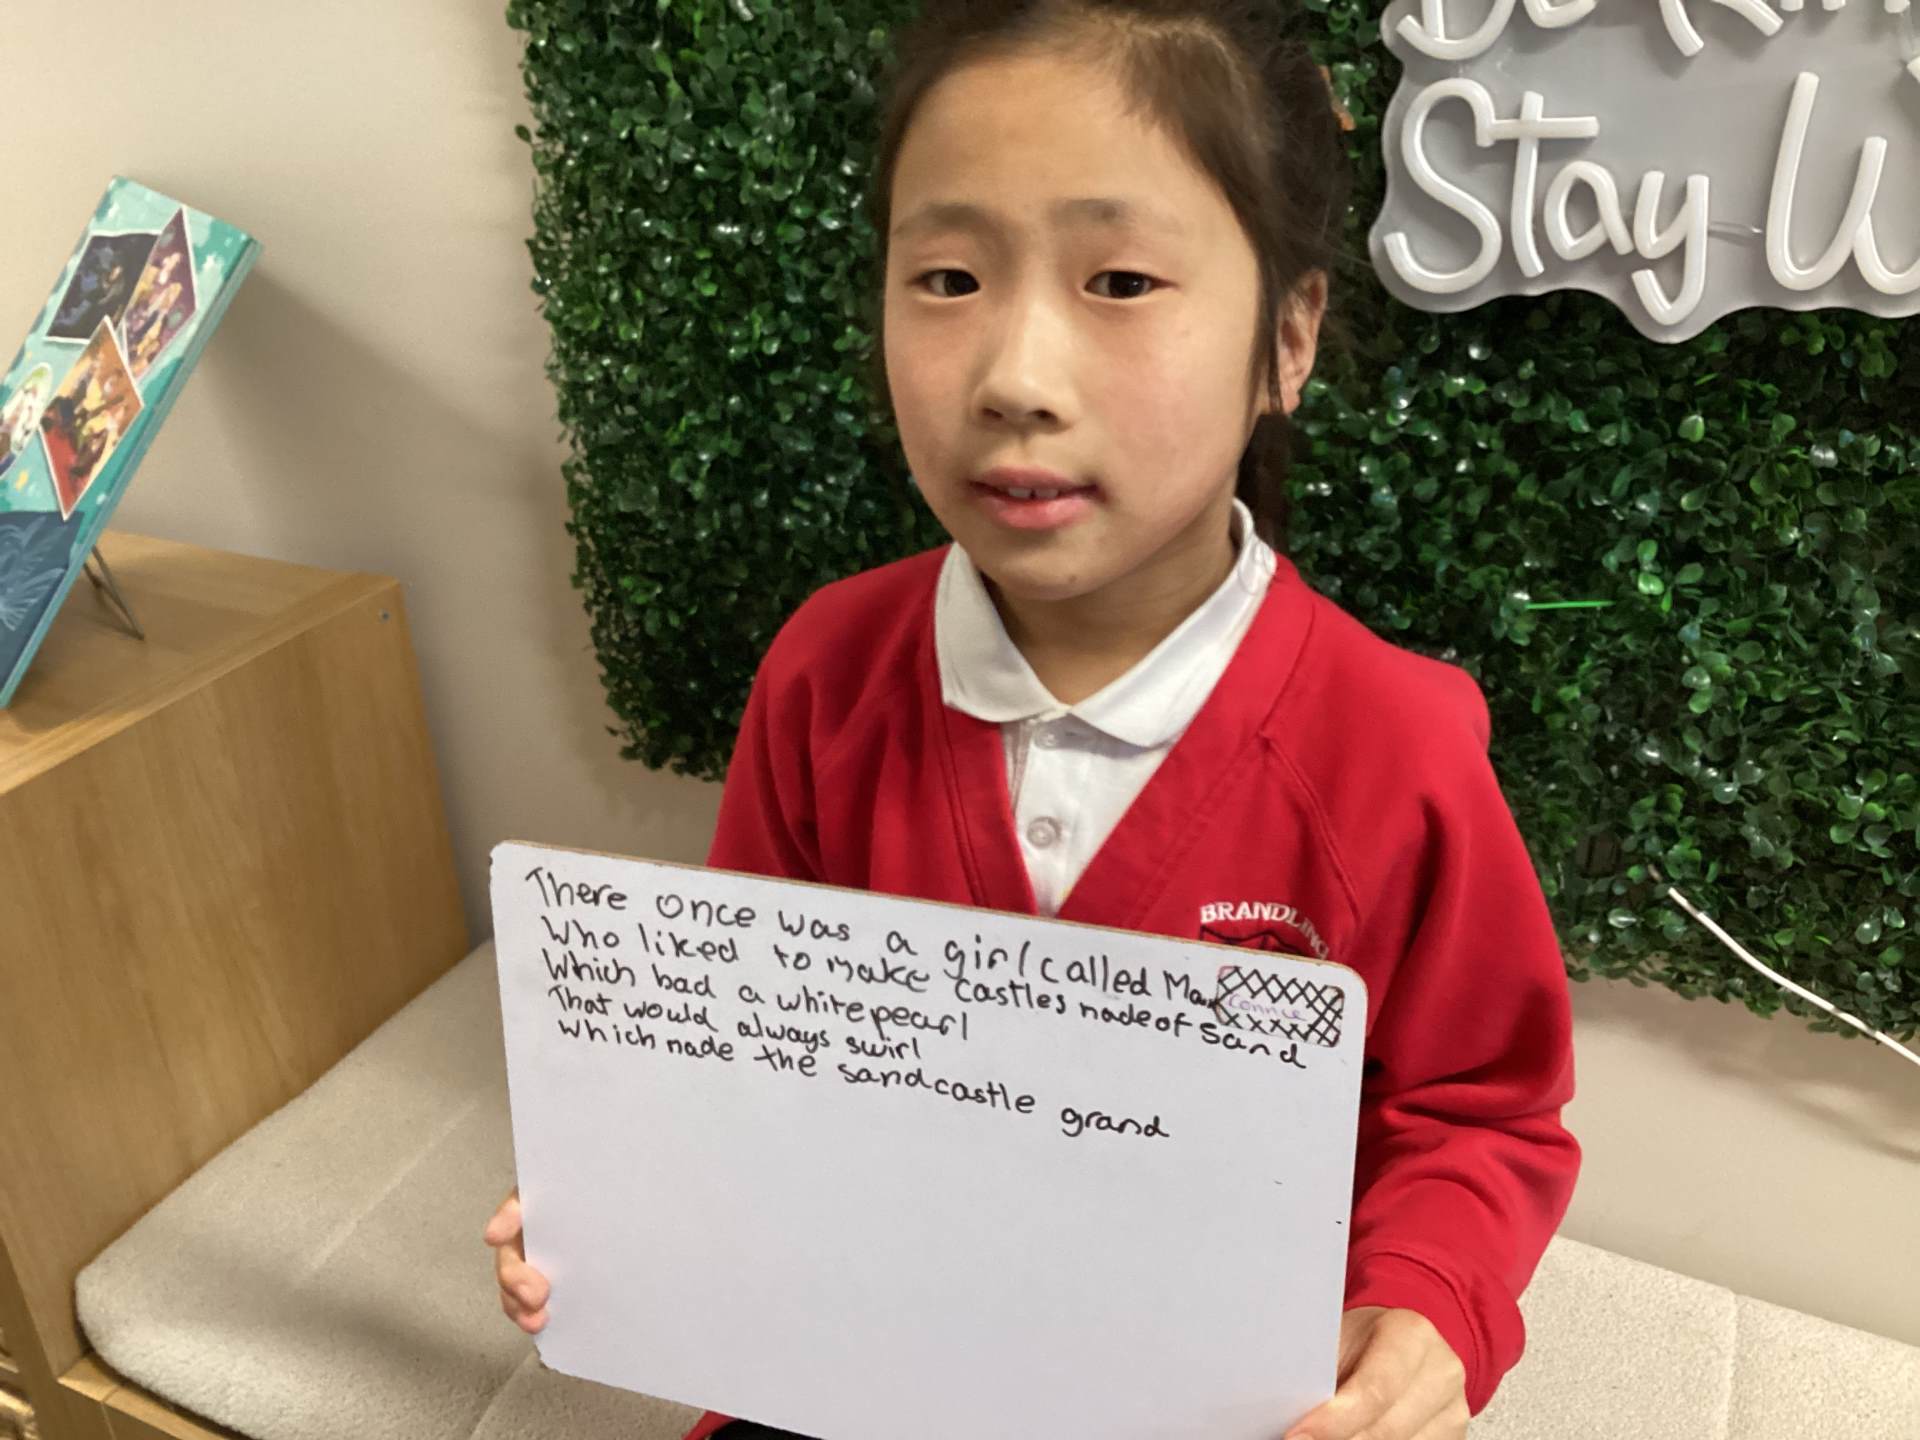 Stay
BRANDLING
There once was a girl called
Who liked to make castles made of sand
Which had a white pearl
That would always swirl
Which made the sandcastle grand